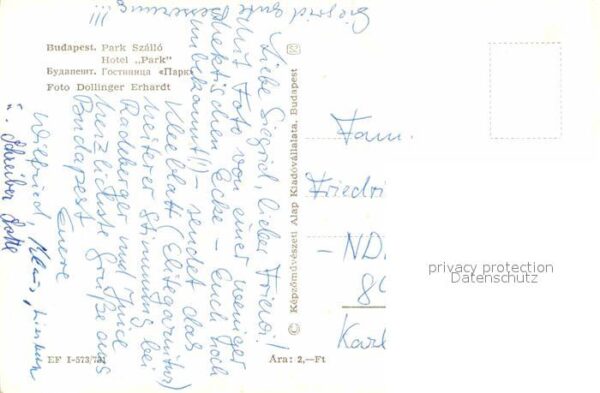 Budapest. Park Szálló
Hotel „Park"
Будапешт. Гостиница «Парк»
Foto Dollinger Erhardt
Liebe Siegrid, lieber Friedi!
Mit Foto von einer weniger
hektischen Ecke – Euch noch
unbekannt(!) – sendet das
Kleeblatt (Elitegarnitur)
heiterer Stimmung bei
Radberger und Juice
herzlichste Grüße aus
Budapest
Euere
Wilfried, Klaus,
Siegrid gute
Besserung !!!
© Képzőművészeti Alap Kiadóvállalata, Budapest
Fam.
Friedri
– ND
Karl
EF I-573/731
Ára: 2,—Ft
privacy protection
Datenschutz